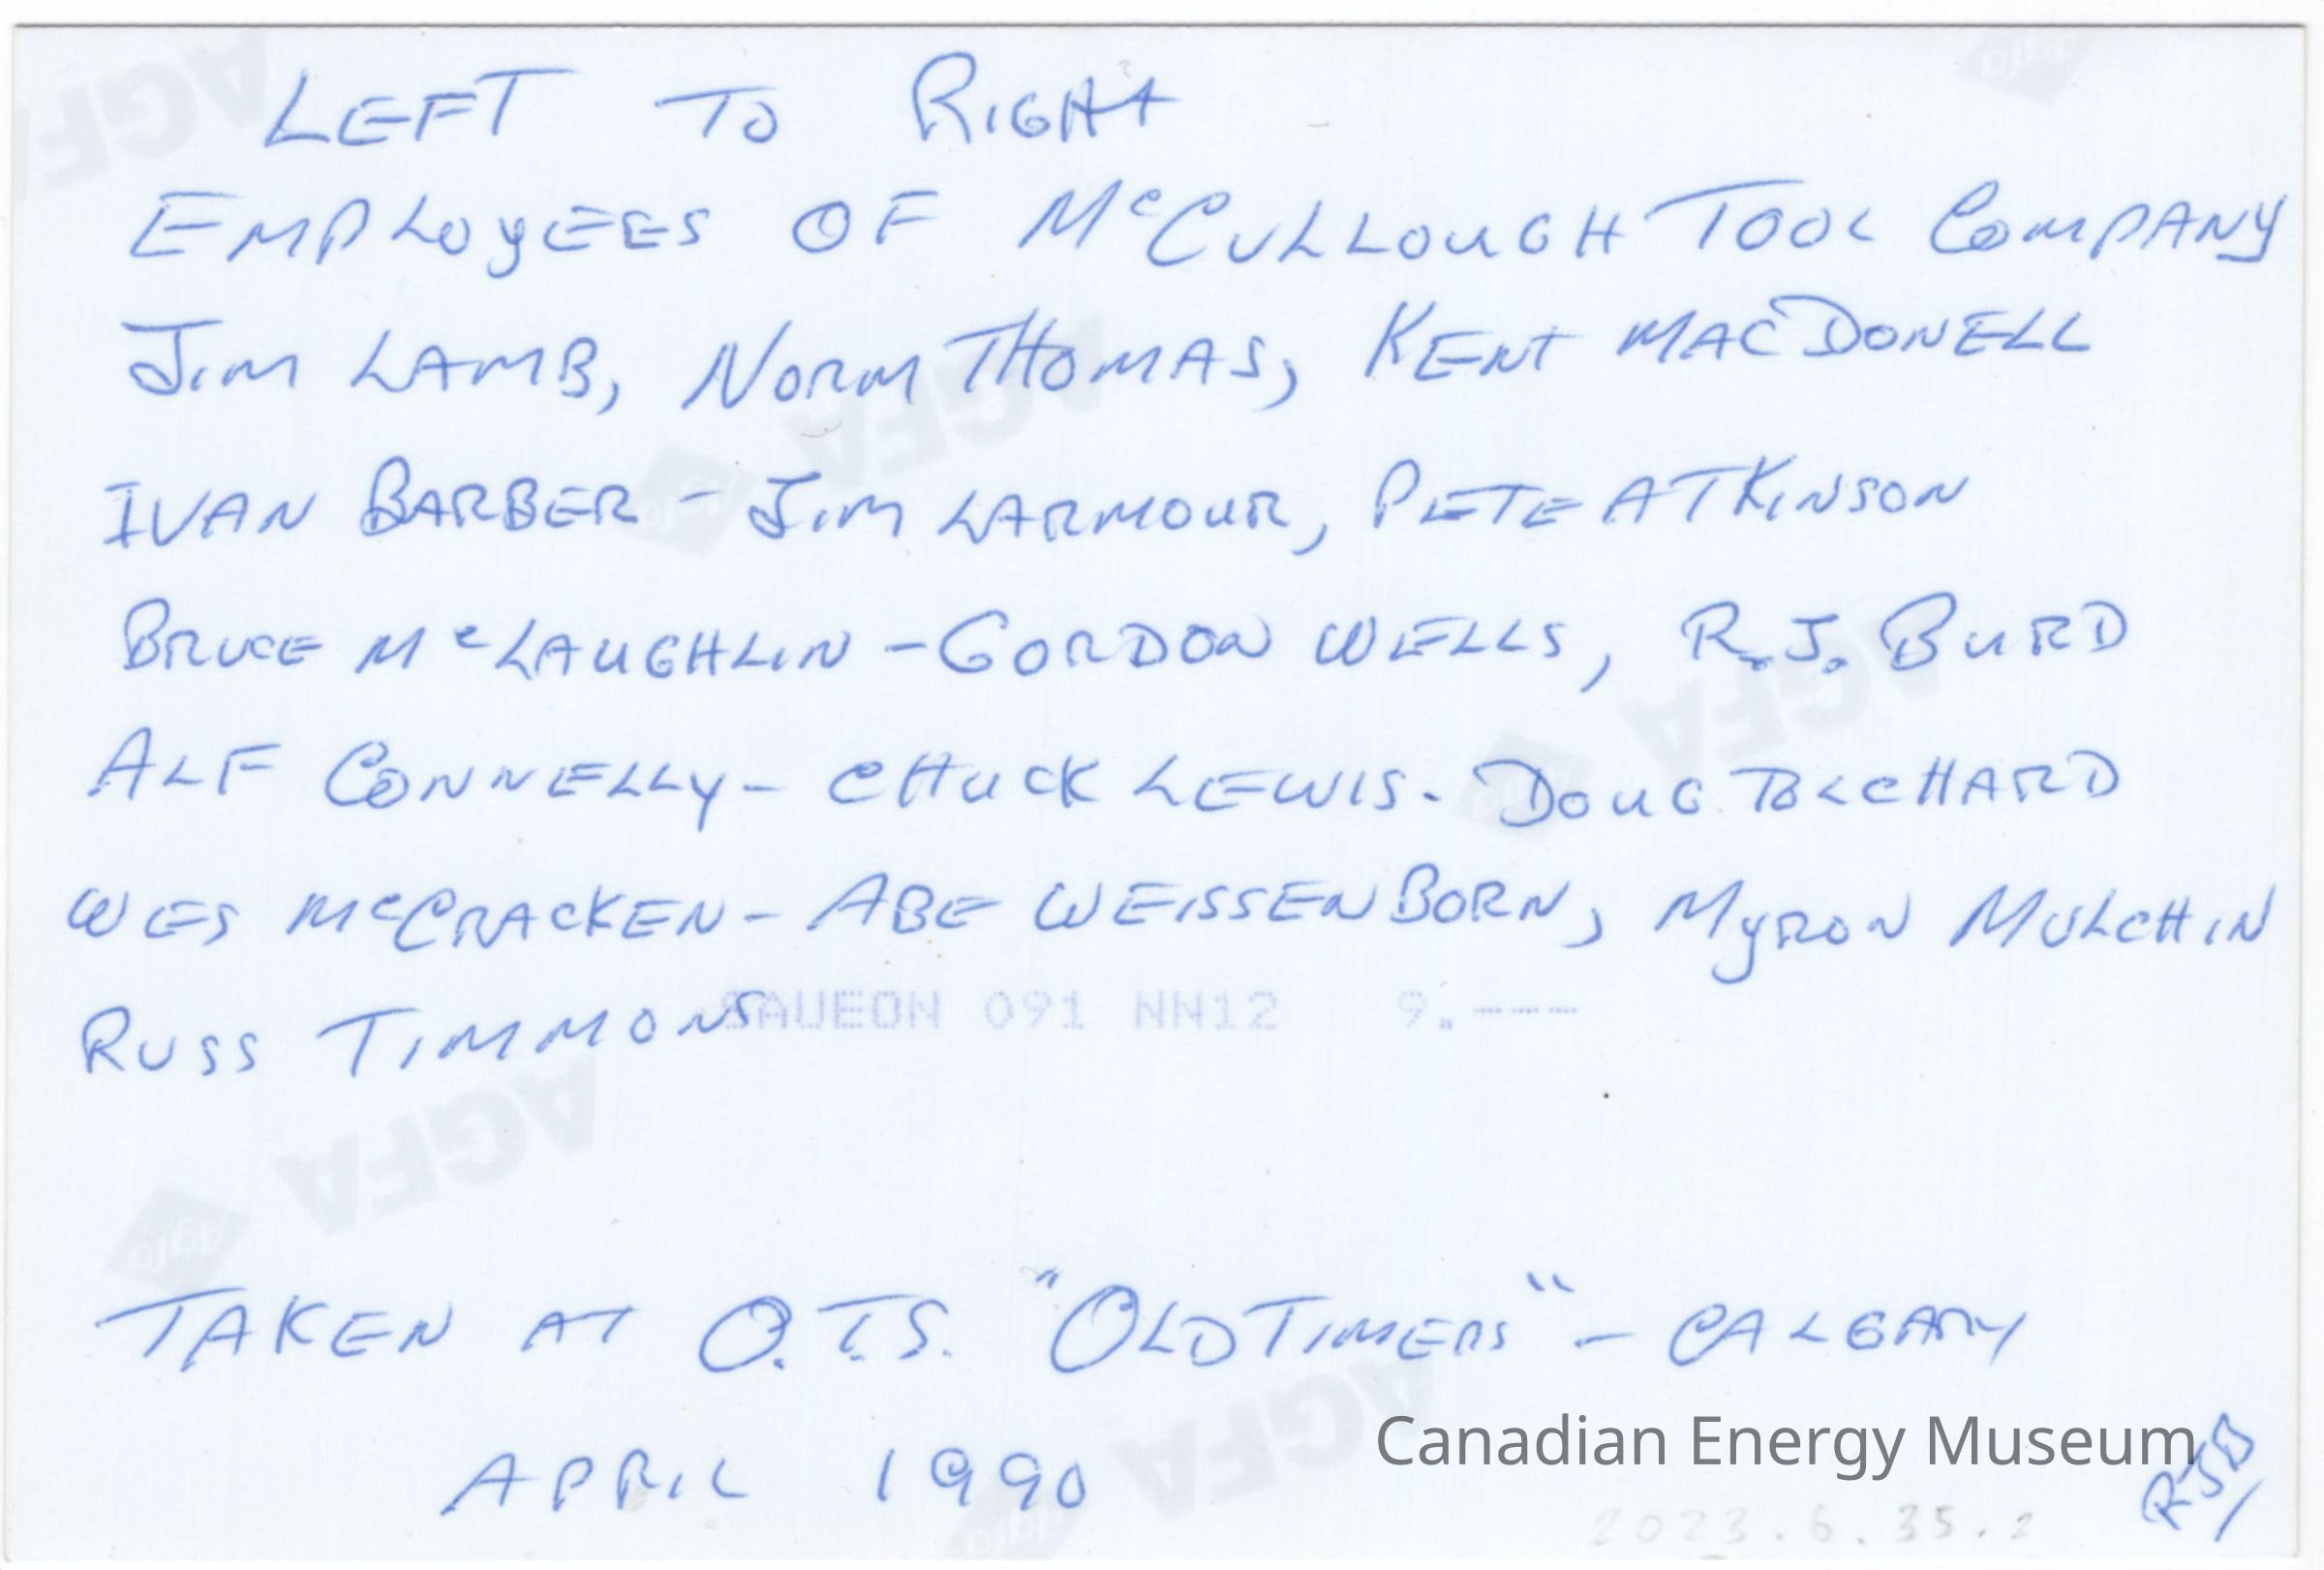 LEFT TO RIGHT
EMPLOYEES OF McCULLOUGH TOOL COMPANY
JIM LAMB, NORM THOMAS, KENT MACDONELL
IVAN BARBER - JIM LARMOUR, PETE ATKINSON
BRUCE McLAUGHLIN - GORDON WELLS, R.J. BURD
ALF CONNELLY - CHUCK LEWIS - DOUG BLCHARD
WES McCRACKEN - ABE WEISSENBORN, MYRON MULCHIN
RUSS TIMMONS
SAUEON 091 NN12 9.---
TAKEN AT O.T.S. "OLD TIMERS" - CALGARY
APRIL 1990
Canadian Energy Museum
RJB
2023.6.35.2
AGFA
AGFA
AGFA
AGFA
AGFA